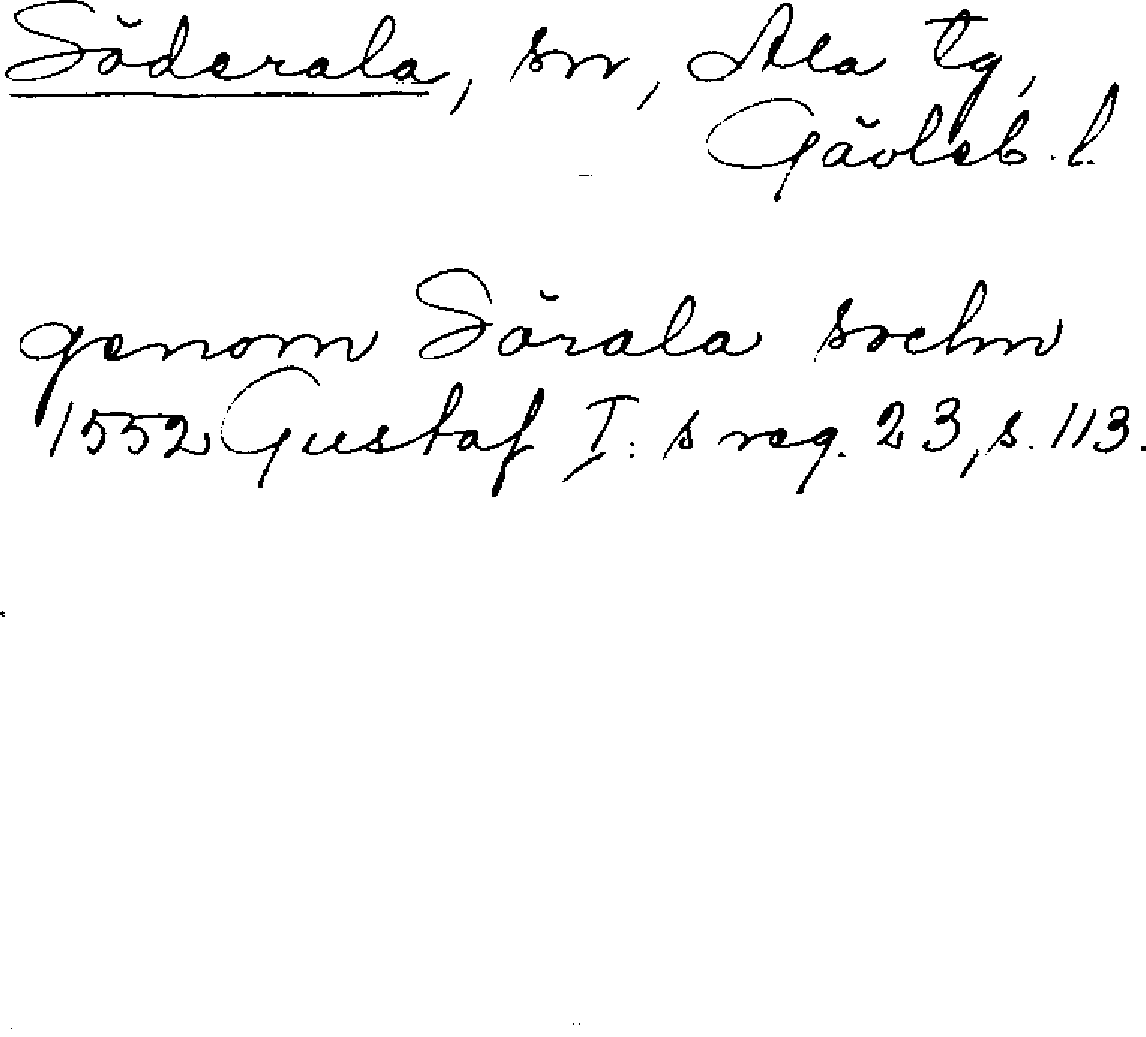 Söderala, sn, Ala tg,
Gävleb. l.
genom Sörala sochn
1552 Gustaf I: s reg. 23, s. 113.